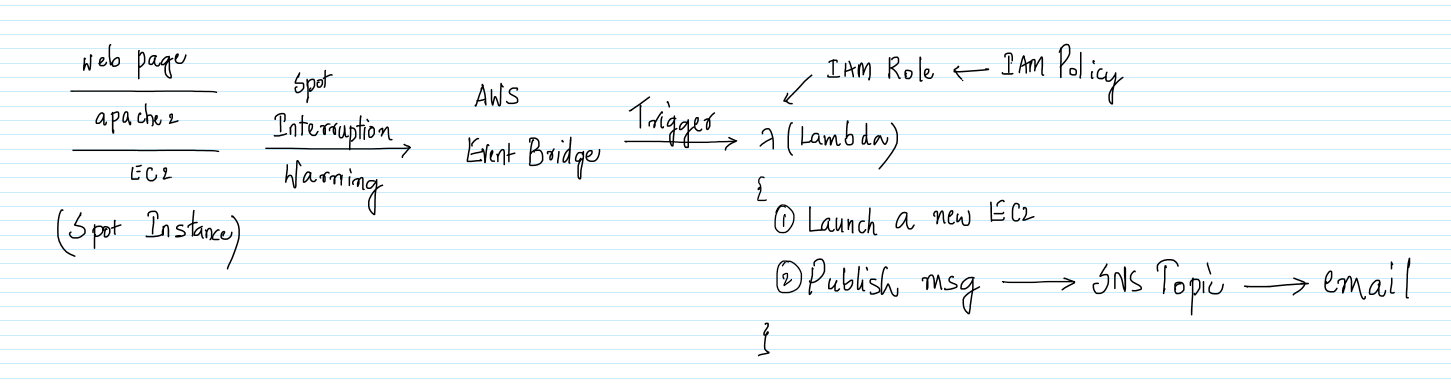 web page
apache2
EC2
(Spot Instance)
Spot
Interruption
Warning
AWS
Event Bridge
Trigger
IAM Role ← IAM Policy
λ (Lambda)
{
① Launch a new EC2
② Publish msg → SNS Topic → email
}